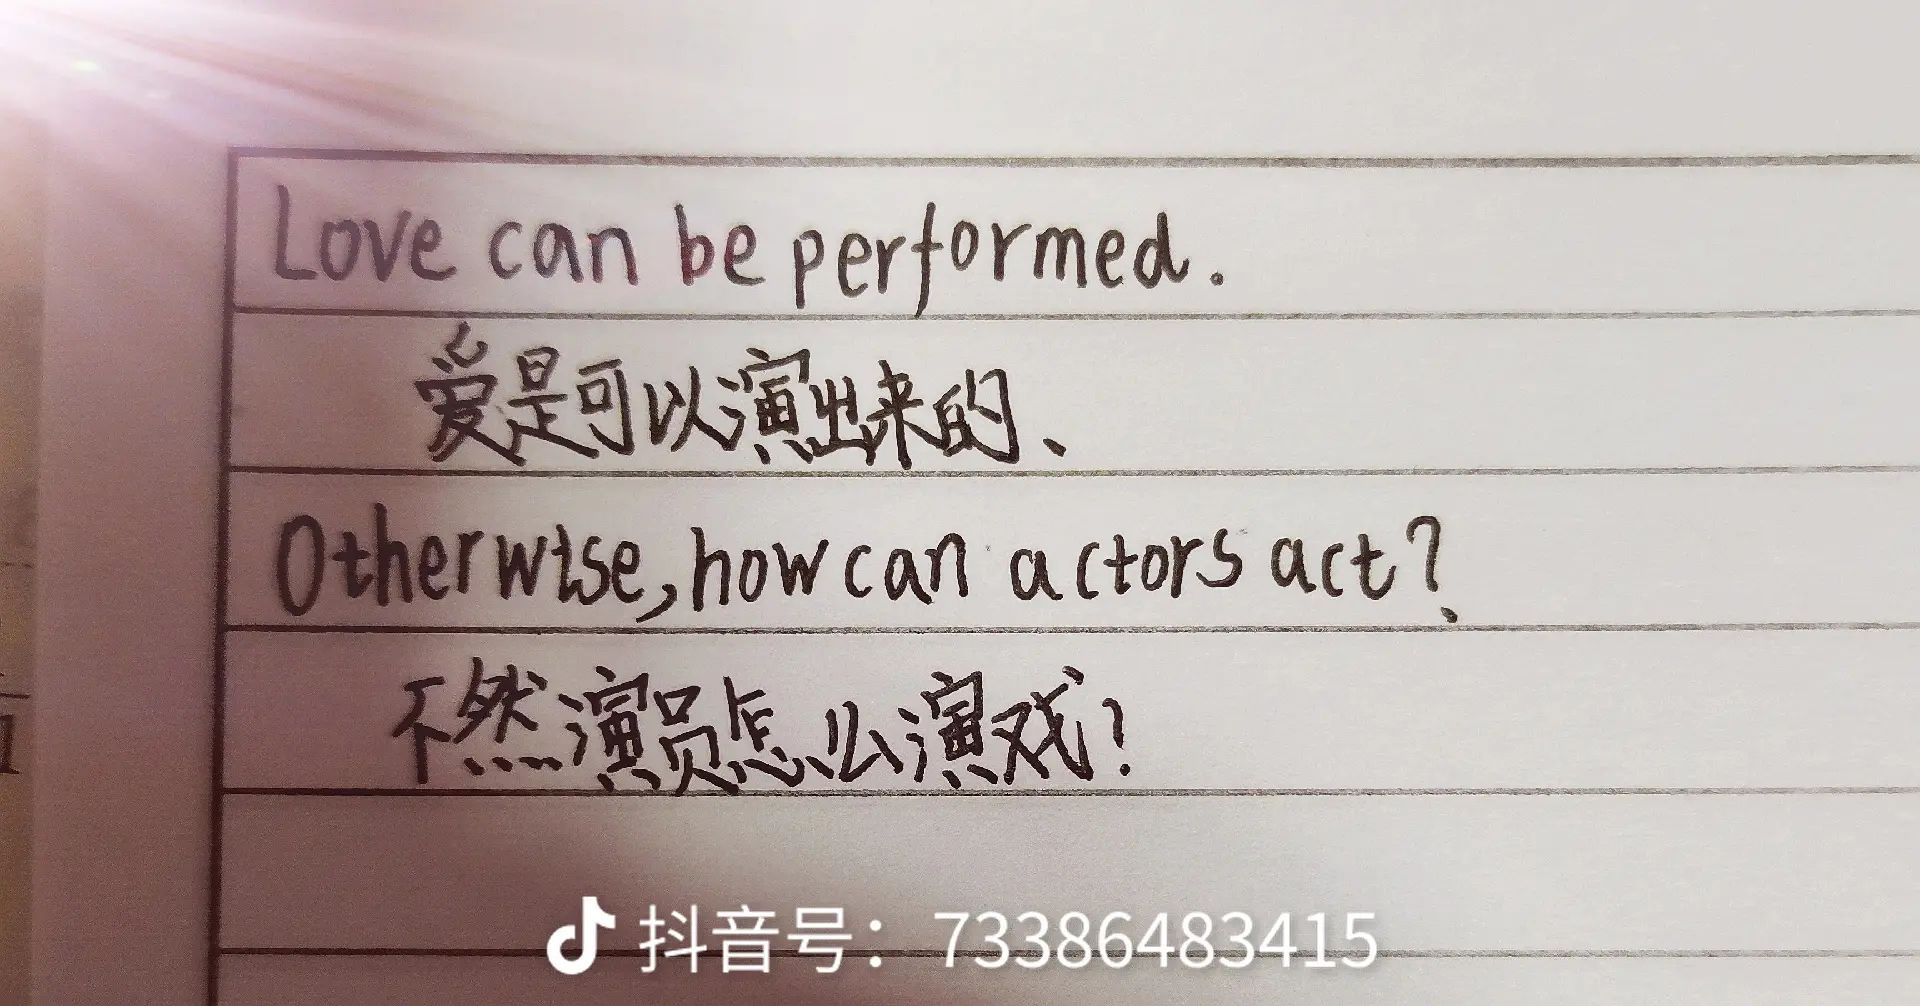 Love can be performed.
爱是可以演出来的、
Otherwise, how can actors act?
不然演员怎么演戏?
抖音号：73386483415